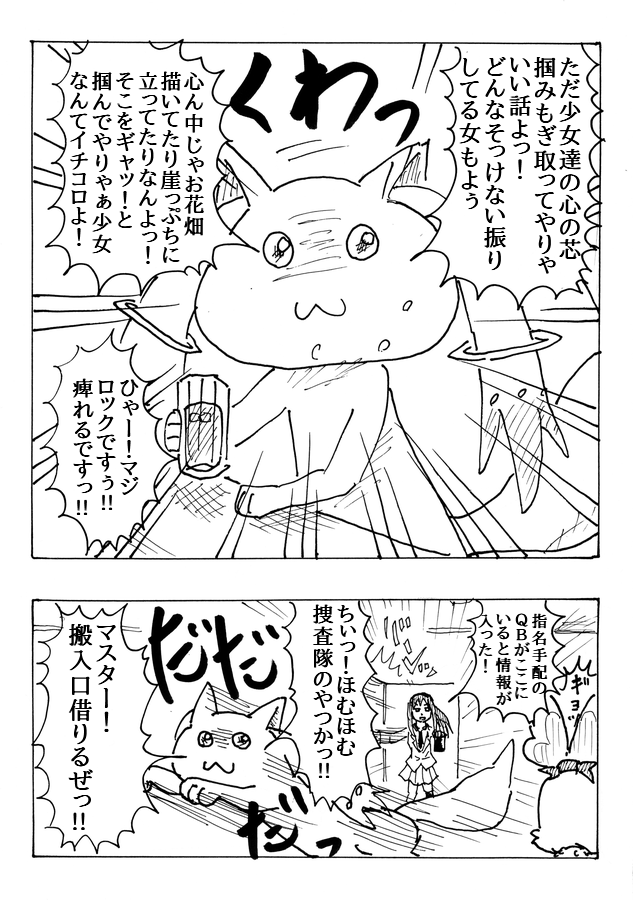 ただ少女達の心の芯
掴みもぎ取ってやりゃ
いい話よっ！
どんなそっけない振り
してる女もよぅ
くわっ
心ん中じゃお花畑
描いてたり崖っぷちに
立ってたりなんよっ！
そこをギャッ！と
掴んでやりゃぁ少女
なんてイチコロよ！
ひゃー！マジ
ロックですぅ!!
痺れるですっ!!
ギョッ
指名手配の
QBがここに
いると情報が
入った！
ちいっ！ほむほむ
捜査隊のやつかっ!!
だだ
だっ
マスター！
搬入口借りるぜっ!!